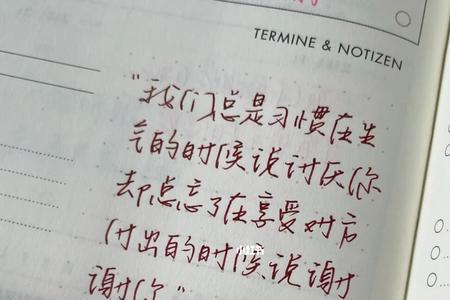 TERMINE & NOTIZEN
"我们总是习惯在生
气的时候说讨厌你
却总忘了在享受对方
付出的时候说谢
谢你"
小红书